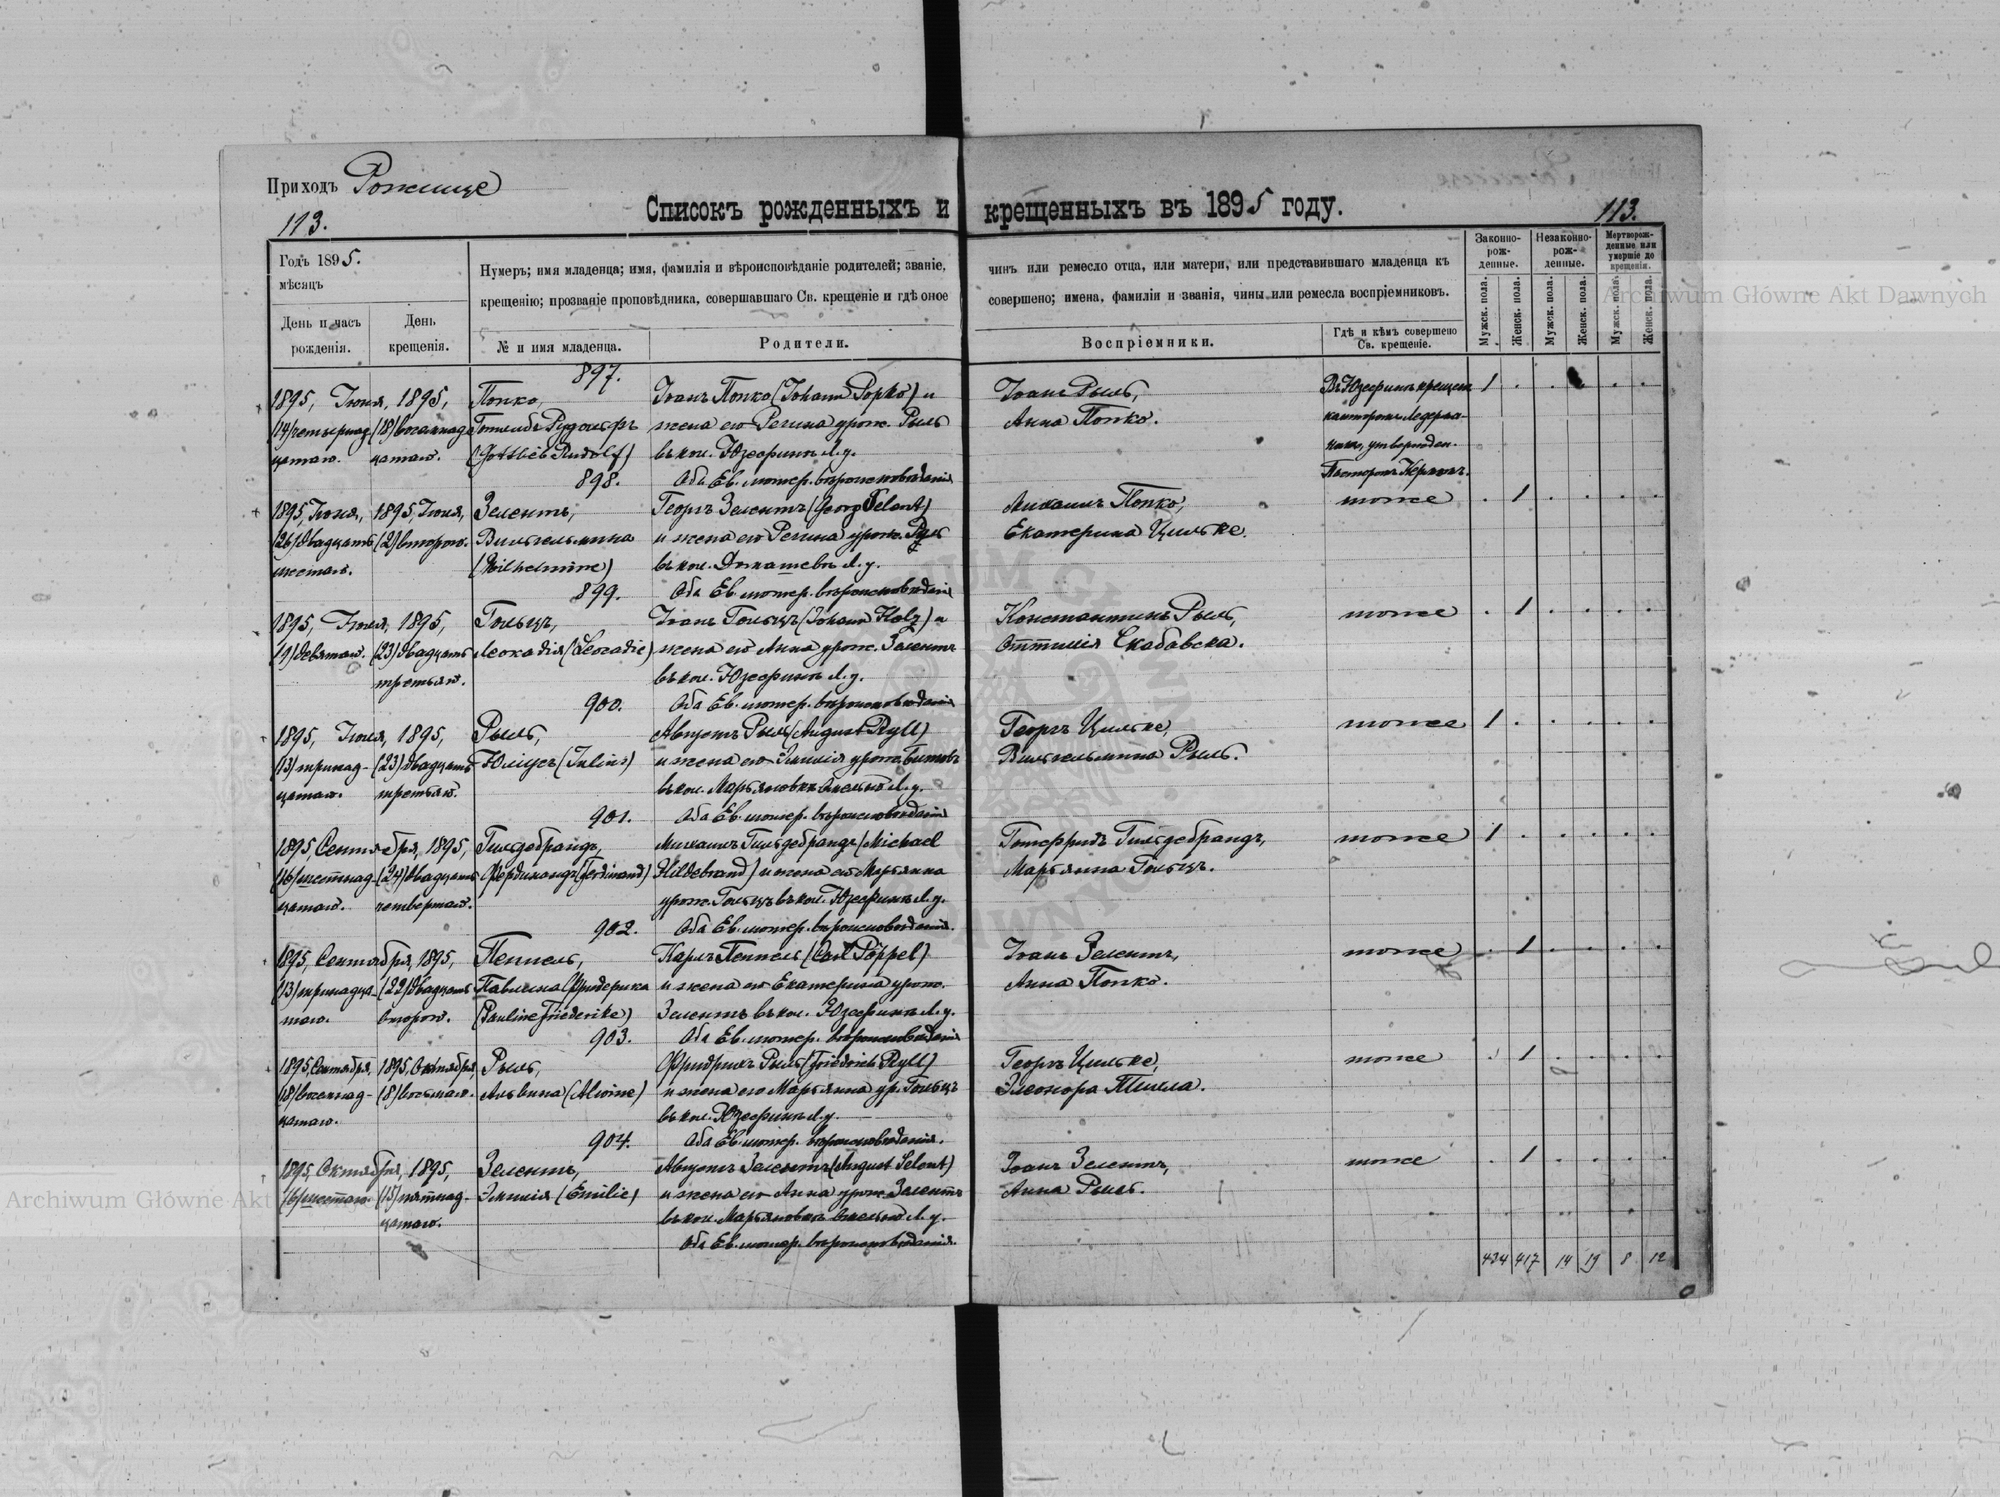 Приходъ Рожище
Списокъ рожденныхъ и крещенныхъ въ 1895 году.
113.
113.
Годъ 1895.
мѣсяцъ
День и часъ рожденія.
День крещенія.
Нумеръ; имя младенца; имя, фамилія и вѣроисповѣданіе родителей; званіе,
крещенію; прозваніе проповѣдника, совершавшаго Св. крещеніе и гдѣ оное
№ и имя младенца.
Родители.
чинъ или ремесло отца, или матери, или представившаго младенца къ
совершено; имена, фамилія и званія, чины или ремесла воспріемниковъ.
Воспріемники.
Гдѣ и кѣмъ совершено
Св. крещеніе.
Законно-
рож-
денные.
Незаконно-
рож-
денные.
Мертворож-
денные или
умершіе до
крещенія.
Мужск. пола.
Женск. пола.
Мужск. пола.
Женск. пола.
Мужск. пола.
Женск. пола.
897.
1895, Іюня, 1895,
(14) четырнад-
цатаго.
(18) восемнад-
цатаго.
Попко,
Готлибъ Рудольфъ
(Gottlieb Rudolf)
Іоанъ Попко (Johann Popko) и
жена его Регина урож. Рыль
въ кол. Юзефинъ Л. у.
Оба Ев. лютер. вѣроисповѣданія
Іоанъ Рыль,
Анна Попко.
Въ Юзефинъ крещенъ
канторомъ
утвержден.
Пасторомъ Керномъ.
1
898.
1895, Іюня,
(26) двадцать
шестаго.
1895, Іюля,
(2) втораго.
Зелентъ,
Вильгельмина
(Wilhelmine)
Георгъ Зелентъ (Georg Selent)
и жена его Регина урож. Рыль
въ кол. Домашевъ Л. у.
Оба Ев. лютер. вѣроисповѣданія
Михаилъ Попко,
Екатерина Цильке.
тоже
1
899.
1895, Іюля, 1895,
(9) девятаго.
(23) двадцать
третьяго.
Гольцъ,
Леокадія (Leocadie)
Іоанъ Гольцъ (Johann Holz) и
жена его Анна урож. Зелентъ
въ кол. Юзефинъ Л. у.
Оба Ев. лютер. вѣроисповѣданія
Константинъ Рыль,
Оттилія Скабавска.
тоже
1
900.
1895, Іюля, 1895,
(13) тринад-
цатаго.
(23) двадцать
третьяго.
Рыль,
Юліусъ (Julius)
Августъ Рыль (August Ryll)
и жена его Эмилія урож.
въ кол. Марьяновкъ Л. у.
Оба Ев. лютер. вѣроисповѣданія
Георгъ Цильке,
Вильгельмина Рыль.
тоже
1
901.
1895, Сентября, 1895,
(16) шестнад-
цатаго.
(24) двадцать
четвертаго.
Гильдебрандъ,
Фердинандъ (Ferdinand)
Михаилъ Гильдебрандъ (Michael
Hildebrand) и жена его Марьянна
урож. Гольцъ въ кол. Юзефинъ Л. у.
Оба Ев. лютер. вѣроисповѣданія.
Готфридъ Гильдебрандъ,
Марьянна Гольцъ.
тоже
1
902.
1895, Сентября, 1895,
(13) тринадца-
таго.
(22) двадцать
втораго.
Пеппель,
Павлина Фридерика
(Pauline Friederike)
Карлъ Пеппель (Carl Pöppel)
и жена его Екатерина урож.
Зелентъ въ кол. Юзефинъ Л. у.
Оба Ев. лютер. вѣроисповѣданія
Іоанъ Зелентъ,
Анна Попко.
тоже
1
903.
1895, Сентября,
(18) восемнад-
цатаго.
1895, Октября,
(8) восьмаго.
Рыль,
Альвина (Alwine)
Фридрихъ Рыль (Friedrich Ryll)
и жена его Марьянна ур. Гольцъ
въ кол. Юзефинъ Л. у.
Оба Ев. лютер. вѣроисповѣданія.
Георгъ Цильке,
Элеонора Тшила.
тоже
1
904.
1895, Октября, 1895,
(6) шестаго.
(15) пятнад-
цатаго.
Зелентъ,
Эмилія (Emilie)
Августъ Зелентъ (August Selent)
и жена его Анна урож. Зелентъ
въ кол. Марьяновкъ Л. у.
Оба Ев. лютер. вѣроисповѣданія.
Іоанъ Зелентъ,
Анна Рыль.
тоже
1
434 417 14 19 8 12
Archiwum Główne Akt Dawnych
Archiwum Główne Akt